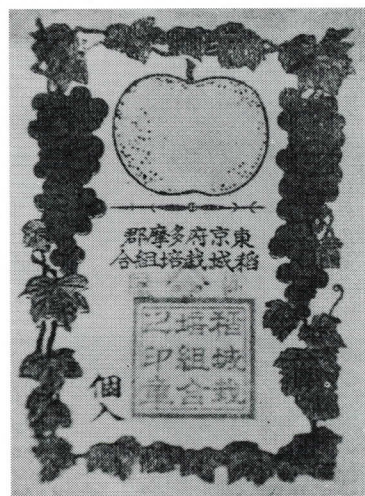 東京府多摩郡
稻城栽培組合
稻城栽
培組合
之印章
個入